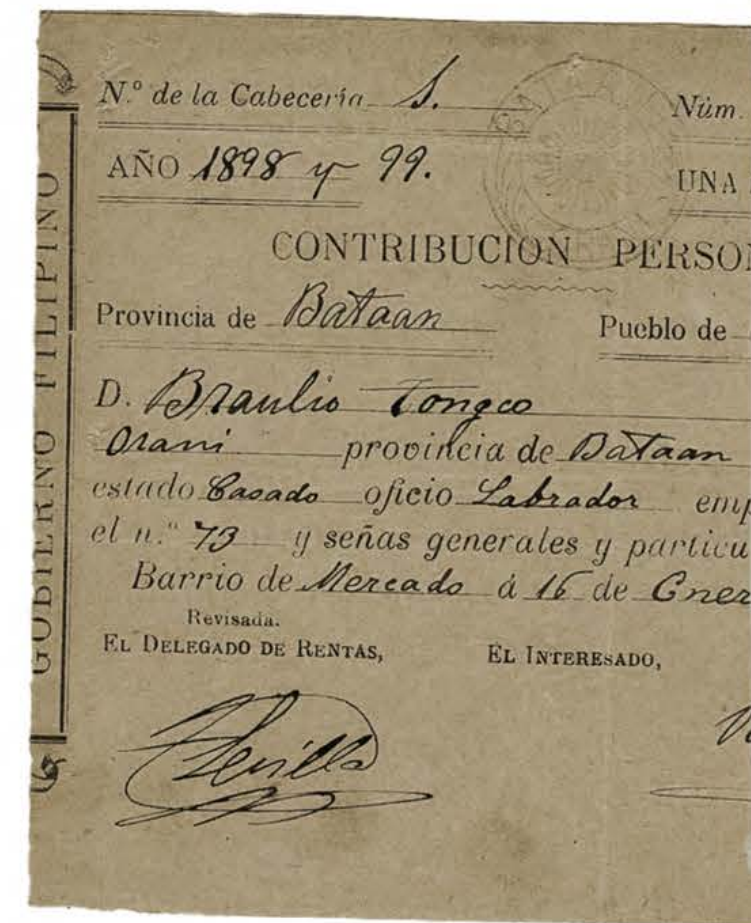 GOBIERNO FILIPINO
N.º de la Cabecería
Núm.
AÑO 1898 y 99.
UNA
CONTRIBUCION PERSON
Provincia de Bataan
Pueblo de
D. Braulio Tongco
Orani provincia de Bataan
estado Casado oficio Labrador emp
el n.º 73 y señas generales y particu
Barrio de Mercado á 16 de Ener
Revisada.
EL DELEGADO DE RENTAS,
EL INTERESADO,
Sevilla